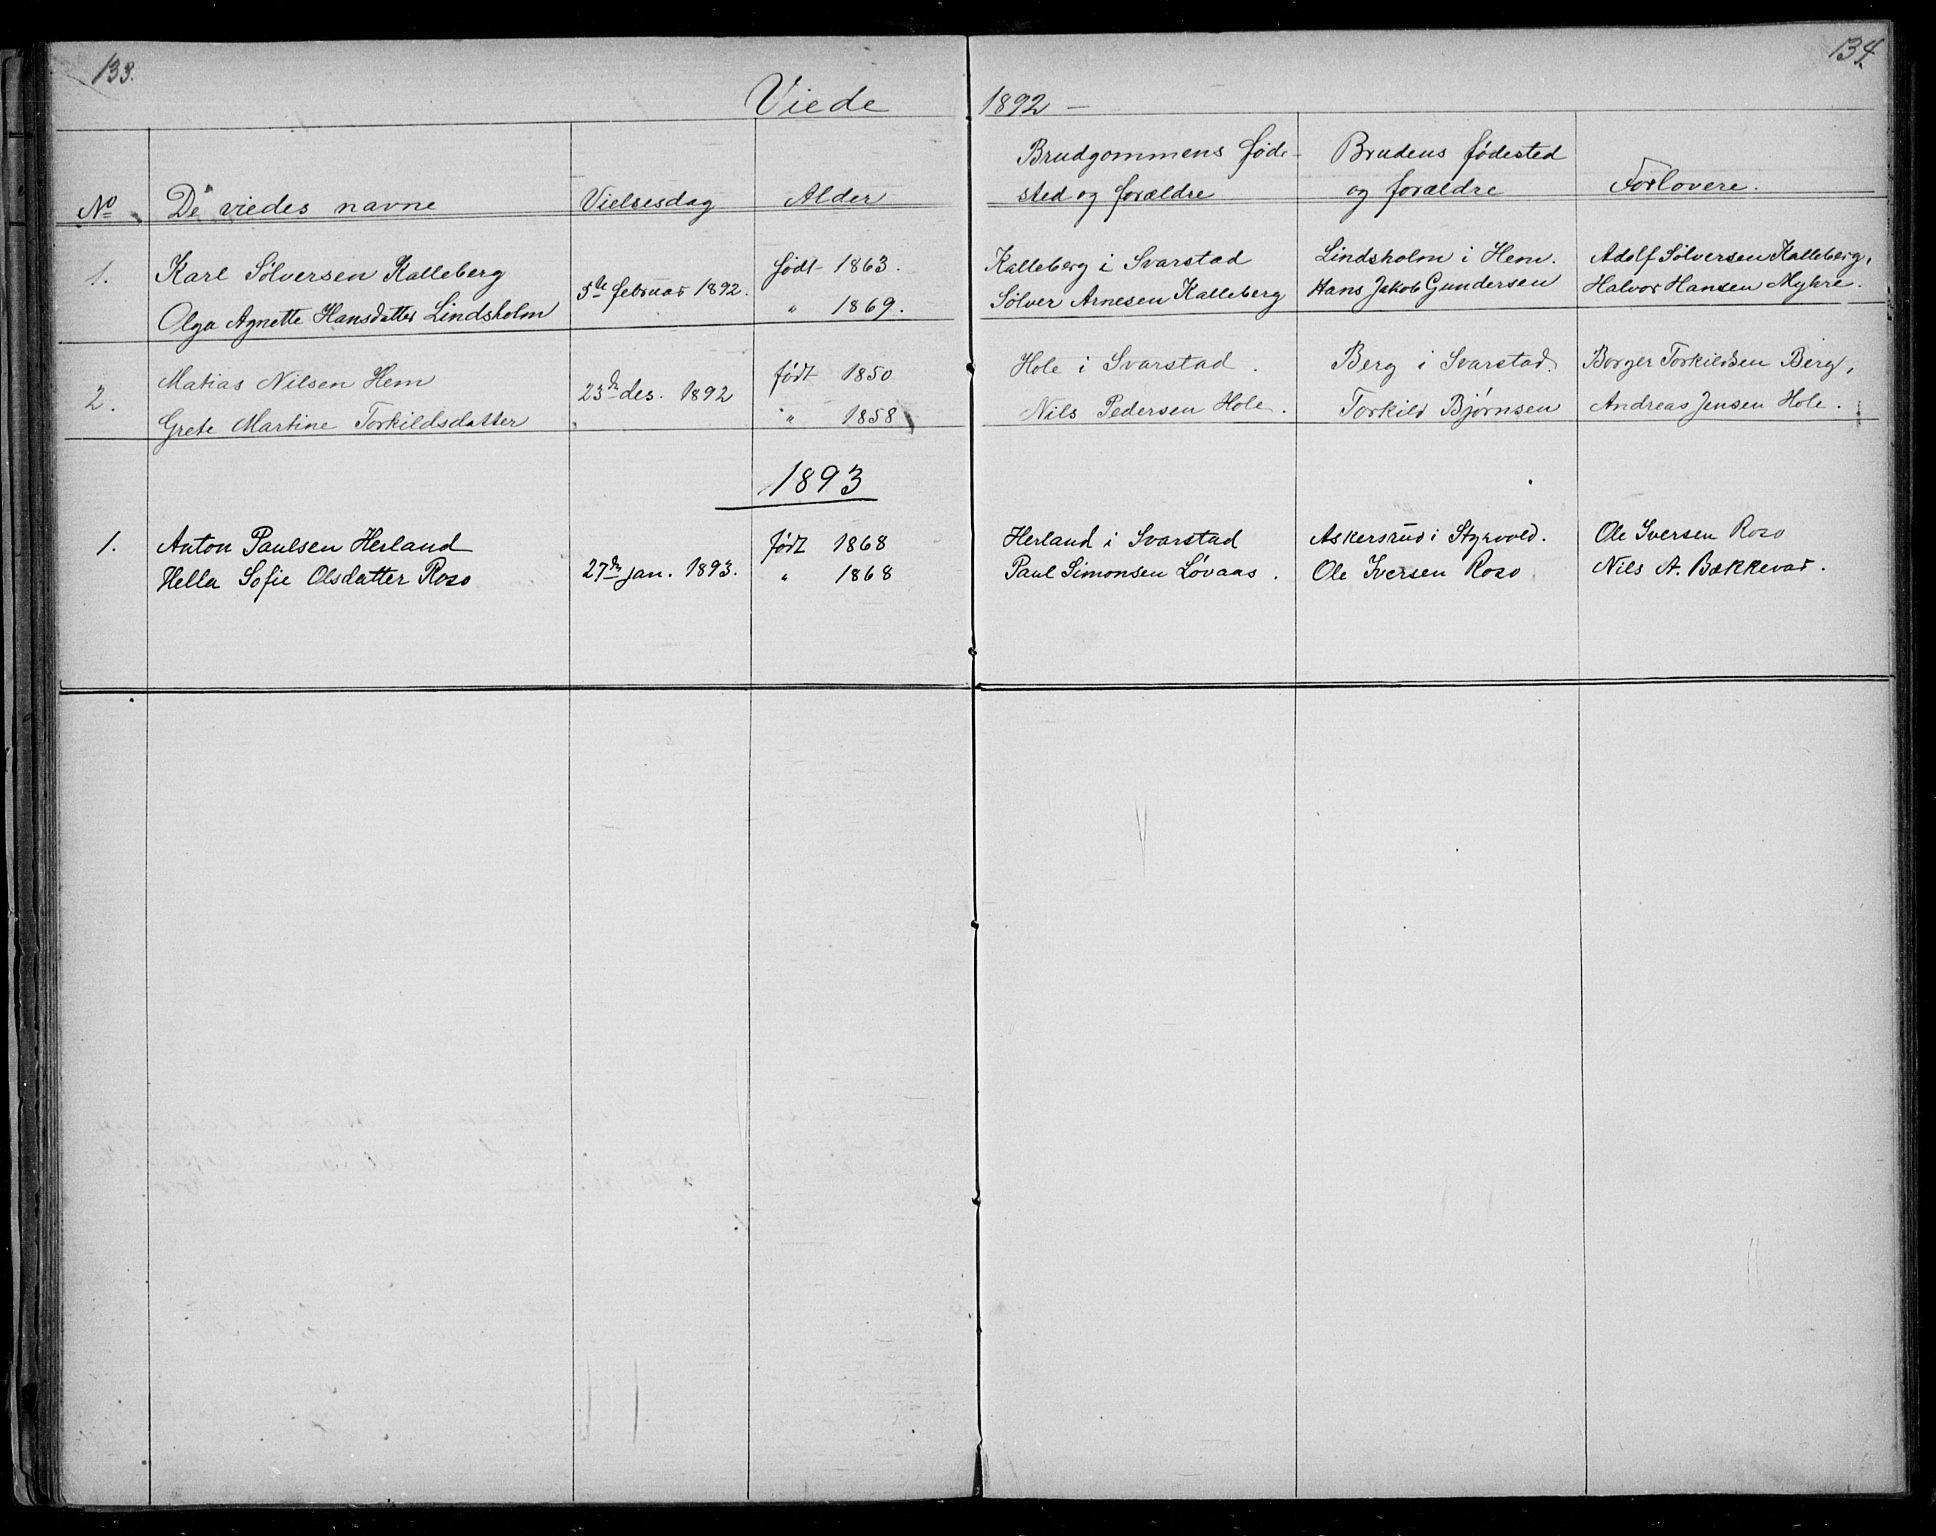 133.
134.
Viede 1892 —
No
De viedes navne
Vielsesdag
Alder
Brudgommens føde-
sted og forældre
Brudens fødested
og forældre
Forlovere.
1.
Karl Sølversen Kalleberg
Olga Agnette Hansdatter Lindsholm
5te februar 1892.
født 1863.
" 1869.
Kalleberg i Svarstad
Sølver Arnesen Kalleberg
Lindsholm i Hem.
Hans Jakob Gundersen
Adolf Sølversen Kalleberg,
Halvor Hansen Myhre.
2.
Matias Nilsen Hem
Grete Martine Torkildsdatter
23de des. 1892
født 1850
" 1858
Hole i Svarstad.
Nils Pedersen Hole.
Berg i Svarstad.
Torkild Bjørnsen
Borger Torkildsen Berg,
Andreas Jensen Hole.
1893
1.
Anton Paulsen Herland
Hella Sofie Olsdatter Roso
27de jan. 1893.
født 1868
" 1868
Herland i Svarstad
Paul Simonsen Løvaas.
Askersrud i Styrvold.
Ole Iversen Roso
Ole Iversen Roso
Nils A. Bækkevar.